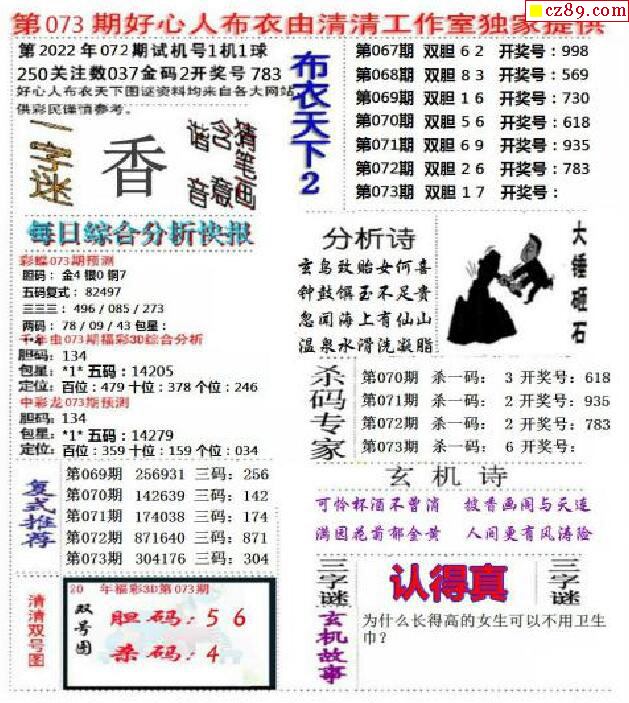 cz89.com
第073期好心人布衣由清清工作室独家提供
第2022年072期试机号1机1球
250关注数037金码2开奖号783
好心人布衣天下图谜资料均来自各大网站
供彩民谨慎参考。
一字迷
香
谐音
含意
猜笔画
每日综合分析快报
彩蝶073期预测
胆码：金4 银0 铜7
五码复式：82497
三三三：496 / 085 / 273
两码：78 / 09 / 43 包星：
千年虫073期福彩3D综合分析
胆码：134
包星：*1* 五码：14205
定位：百位：479 十位：378 个位：246
中彩龙073期预测
胆码：134
包星：*1* 五码：14279
定位：百位：359 十位：159 个位：034
复式推荐
第069期 256931 三码：256
第070期 142639 三码：142
第071期 174038 三码：174
第072期 871640 三码：871
第073期 304176 三码：304
清清双号图
20 年福彩3D第073期
双号图
胆码：5 6
杀码：4
布衣天下2
第067期 双胆 6 2 开奖号：998
第068期 双胆 8 3 开奖号：569
第069期 双胆 1 6 开奖号：730
第070期 双胆 5 6 开奖号：618
第071期 双胆 6 9 开奖号：935
第072期 双胆 2 6 开奖号：783
第073期 双胆 1 7 开奖号：
分析诗
玄鸟致贻女何喜
钟鼓馔玉不足贵
忽闻海上有仙山
温泉水滑洗凝脂
大锤砸石
杀码专家
第070期 杀一码： 3 开奖号：618
第071期 杀一码： 2 开奖号：935
第072期 杀一码： 2 开奖号：783
第073期 杀一码： 6 开奖号：
玄机诗
可怜杯酒不曾消 披香画阁与天连
满园花首郁金黄 人间更有风涛险
三字谜
认得真
三字谜
玄机故事
为什么长得高的女生可以不用卫生
巾？